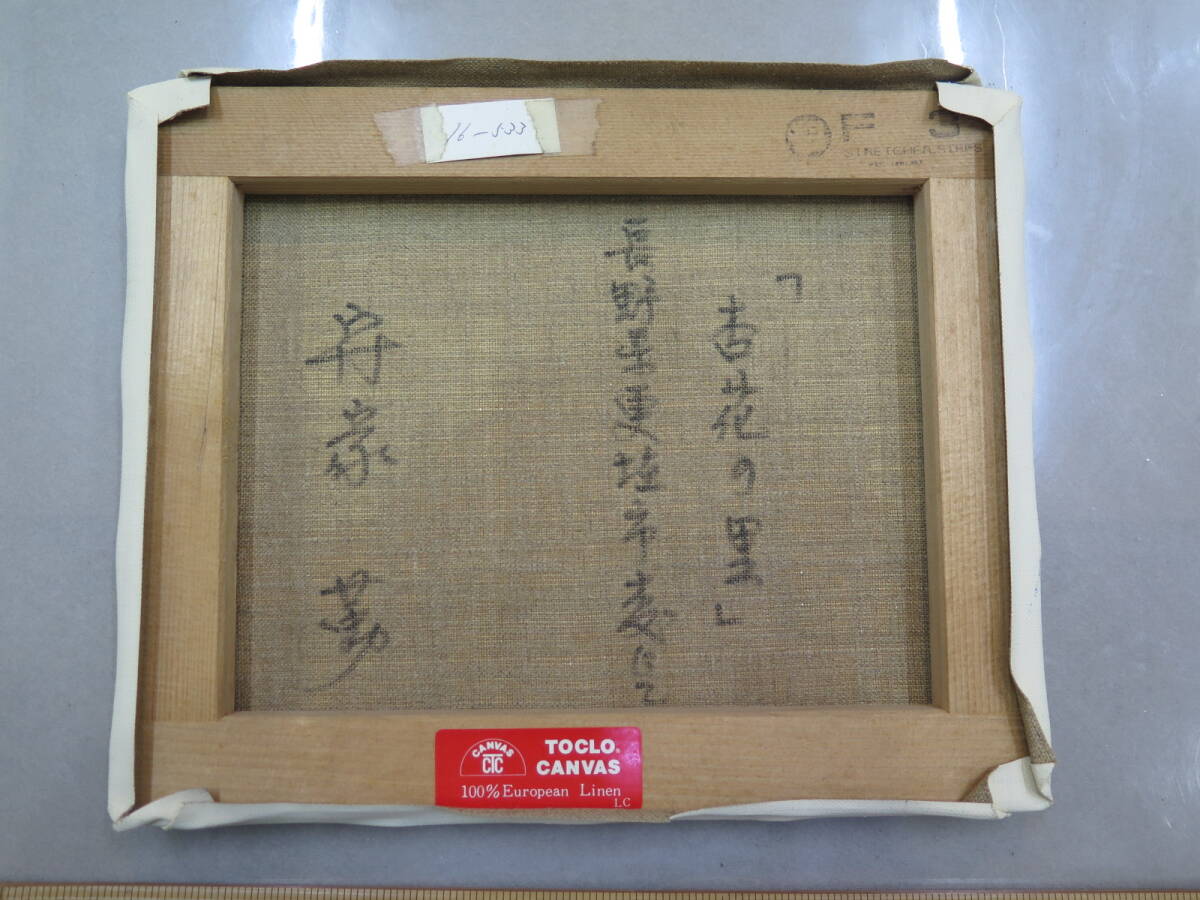 16-533
F 3
STRETCHER STRIPS
「杏花の里」
長野県更埴市森にて
勤
CANVAS
CTC
TOCLO
CANVAS
100% European Linen
LC